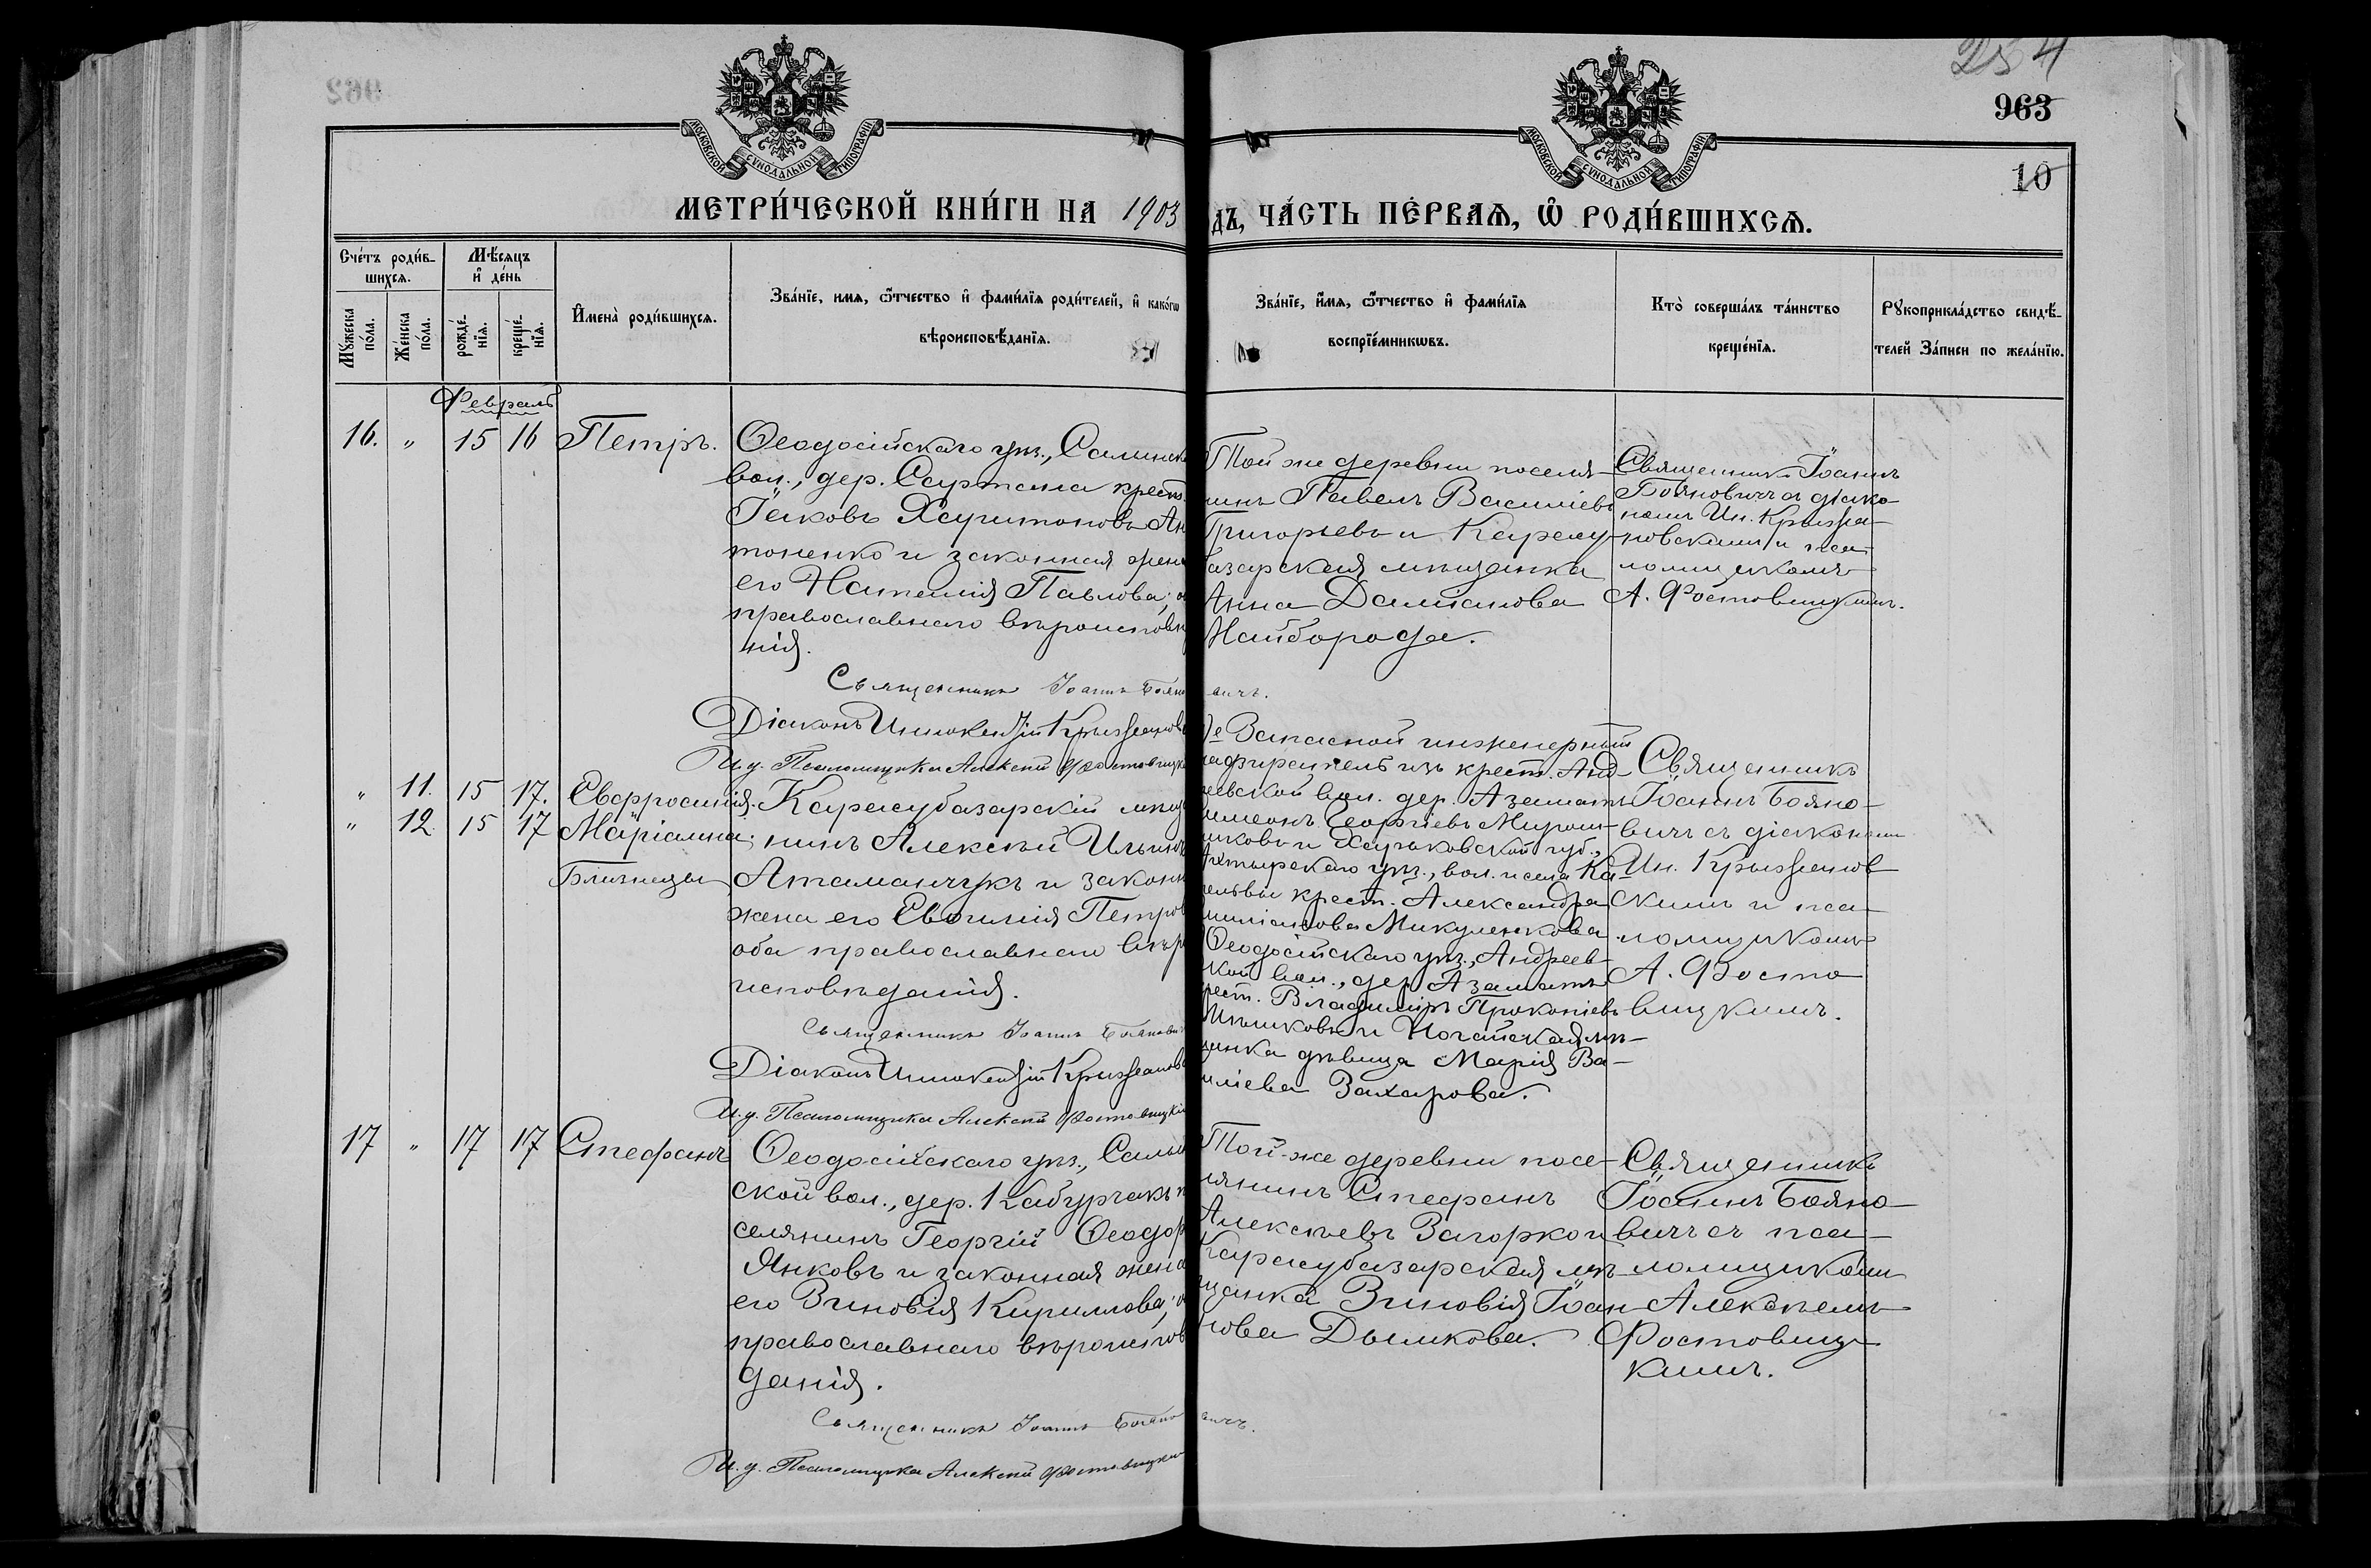 254
963
10
МОСКОВСКОЙ СУНОДАЛЬНОЙ ТИПОГРАФІИ
МОСКОВСКОЙ СУНОДАЛЬНОЙ ТИПОГРАФІИ
МЕТРИ́ЧЕСКОЙ КНИ́ГИ НА 1903
дъ, ЧА́СТЬ ПЕ́РВАѦ, Ѿ РОДИ́ВШИХСѦ.
Сче́тъ роди́в-
шихсѧ.
Мѣ́сяцъ
и҆ де́нь
Му́жеска по́ла.
Же́нска по́ла.
рожде́-нїѧ.
креще́-нїѧ.
И҆мена̀ роди́вшихсѧ.
Зва́нїе, имѧ, ѻ҆́тчество и҆ фами́лїѧ роди́телей, и҆ како́гѡ
вѣроисповѣ́данїѧ.
Зва́нїе, и҆́мѧ, ѻ҆́тчество и҆ фами́лїѧ
воспрїе́мникѡвъ.
Кто̀ соверша́лъ та́инство
креще́нїѧ.
Рукоприкла́дство свидѣ́-
телей За́писи по жела́нїю.
Февраль
16. „ 15 16 Петръ.
Ѳеодосійскаго уѣз., Салынск
вол., дер. Сартана крест.
Іаковъ Харитоновъ Ан
тоненко и законная жена
его Наталія Павлова; о
православнаго вѣроисповѣ
нія.
Священникъ Іоаннъ Бояно
Діаконъ Иннокентій Крыжанов
И. д. Псаломщика Алексій Фостовицкі
Той же деревни поселя-
нинъ Павелъ Василіевъ
Григорьевъ и Карасу-
базарская мѣщанка
Анна Даміанова
Найборода.
вичъ.
Священникъ Іоаннъ
Бояновичъ съ діако-
номъ Ин. Крыжа-
новскимъ и пса-
ломщикомъ
А. Фостовицкимъ.
„ 11. 15 17. Евфросинія.
„ 12. 15 17 Маріамна;
Близнецы
Карасубазарскій мѣща
нинъ Алексѣй Ильинъ
Атаманчукъ и законн
жена его Евѳимія Петров
оба православнаго вѣро
исповѣданія.
Священникъ Іоаннъ Боянович
Діаконъ Иннокентій Крыжанов
И. д. Псаломщика Алексій Фостовицкій
Запасной инженерный
надзиратель изъ крест. Анд-
реевской вол. дер. Азаматъ
Симеонъ Георгіевъ Мирош-
никовъ и Харьковской губ.,
Ахтырскаго уѣз., вол. и села Ко-
тельвы крест. Александра
Микуленкова
Ѳеодосійскаго уѣз., Андреев-
кой вол., дер. Азаматъ
крест. Владимиръ Прокопіевъ
Мѣшковъ и Ногайская мѣ-
щанка дѣвица Марія Ва-
силіева Захарова.
Священникъ
Іоаннъ Бояно-
вичъ съ діакономъ
Ин. Крыжанов
скимъ и пса-
ломщикомъ
А. Фосто
вицкимъ.
17 „ 17 17 Стефанъ
Ѳеодосійскаго уѣз., Салын
ской вол., дер. Кабурчакъ п
селянинъ Георгій Ѳеодор
Янковъ и законная жена
его Зиновія Кириллова; о
православнаго вѣроисповѣ
данія.
Священникъ Іоаннъ Бояно
И. д. Псаломщика Алексій Фостовицкій
Той-же деревни посе-
лянинъ Стефанъ
Алексѣевъ Загорко и
Карасубазарская мѣ-
щанка Зиновія Іоан-
нова Дымкова.
вичъ.
Священникъ
Іоаннъ Бояно-
вичъ съ пса-
ломщикомъ
Алексѣемъ
Фостовиц
кимъ.